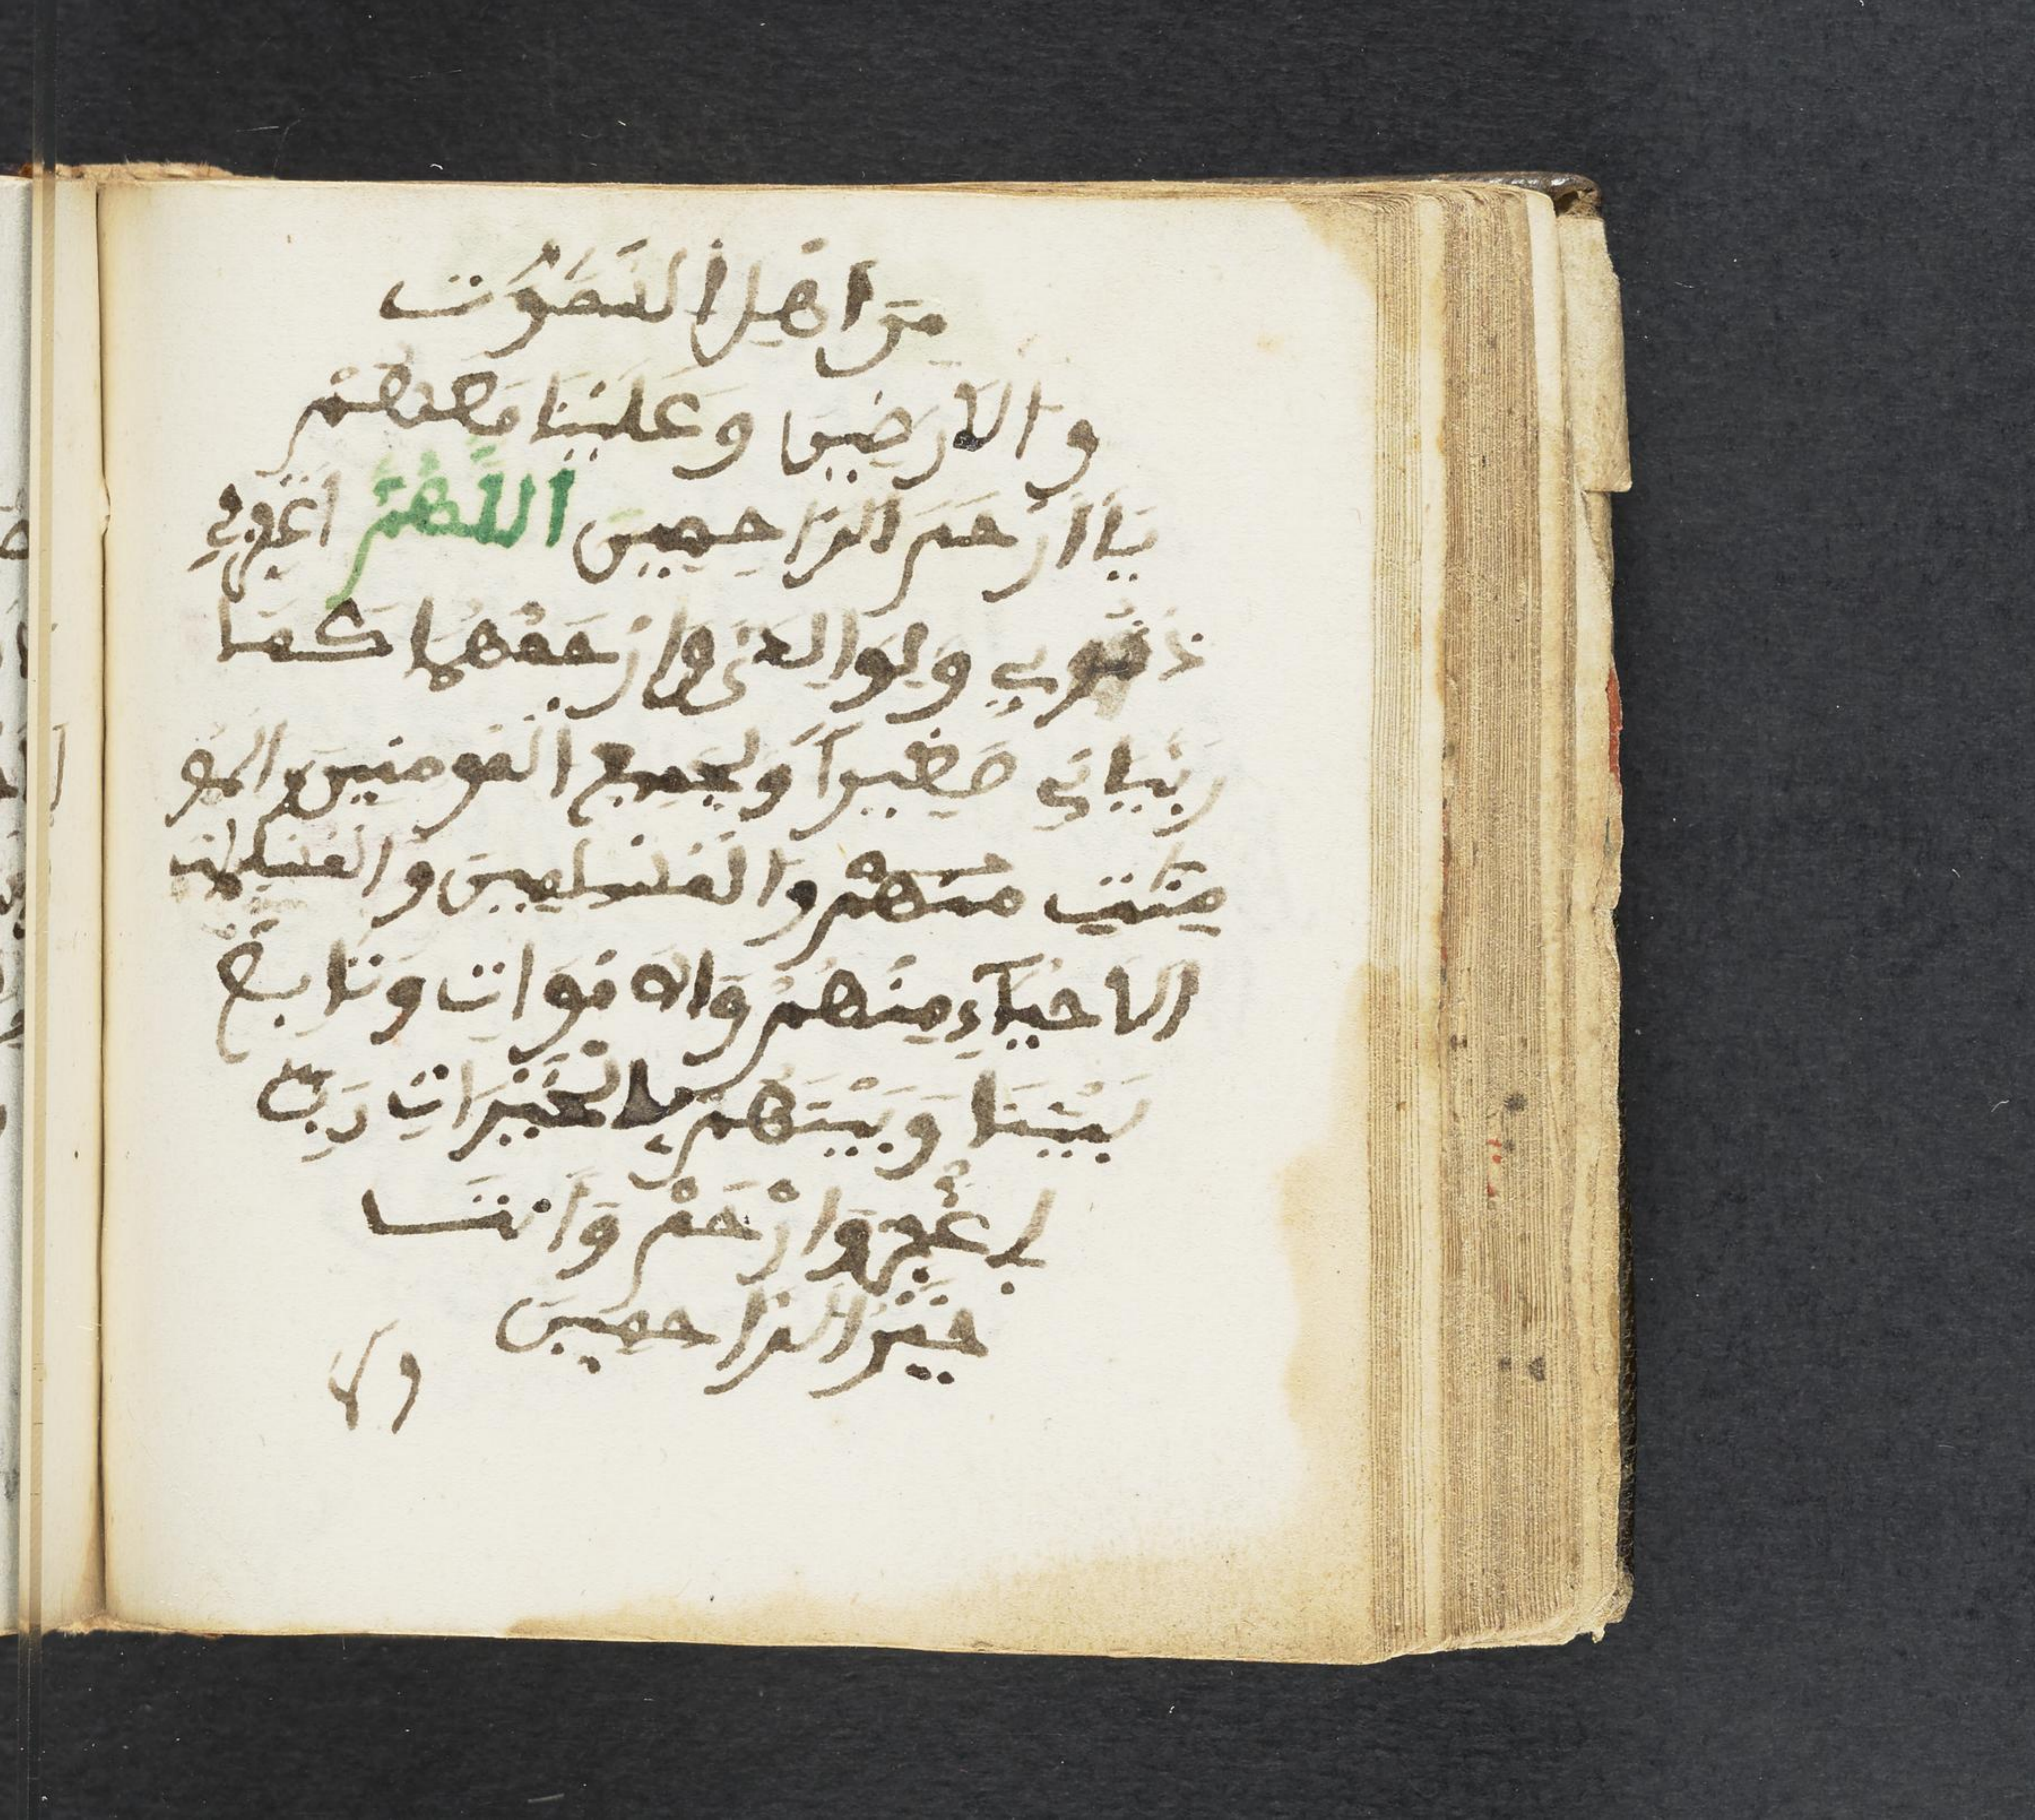 مِنَ اَهْلِ السَّمٰوٰتِ
وَالاَرَضِينَ وَعَلَيْنَا مَعَهُمْ
يَا اَرْحَمَ الرَّاحِمِينَ اَللّٰهُمَّ اغْفِرْ لِي
ذُنُوبِي وَلِوَالِدَيَّ وَارْحَمْهُمَا كَمَا
رَبَّيَانِي صَغِيراً وَلِجَمِيعِ الْمُومِنِينَ وَالْمُو
مِنَٰتِ مِنْهُمْ وَالْمُسْلِمِينَ وَالْمُسْلِمَاتِ
الاَحْيَآءِ مِنْهُمْ وَالاَمْوَاتِ وَتَابِعْ
بَيْنَنَا وَبَيْنَهُمْ بِالْخَيْرَاتِ رَبِّ
اِغْفِرْ وَارْحَمْ وَاَنْتَ
خَيْرُ الرَّاحِمِينَ
ولا